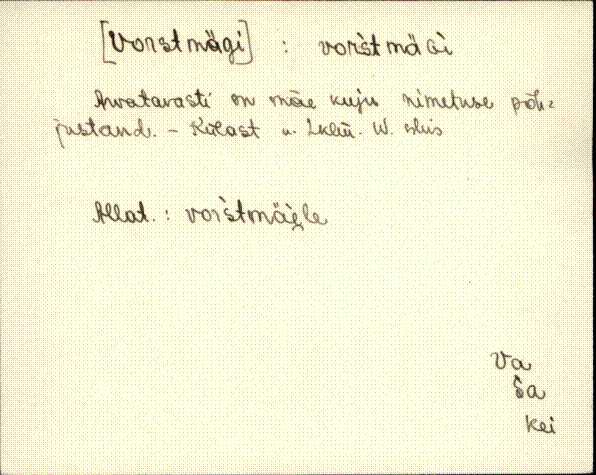 [Vorstmägi] : vorstmäGi
Arvatavasti on mäe kuju nimetuse põh=
justand. - Külast u. 2 klm. W.
Allat. : vorstmäele
Va
Sa
Kei